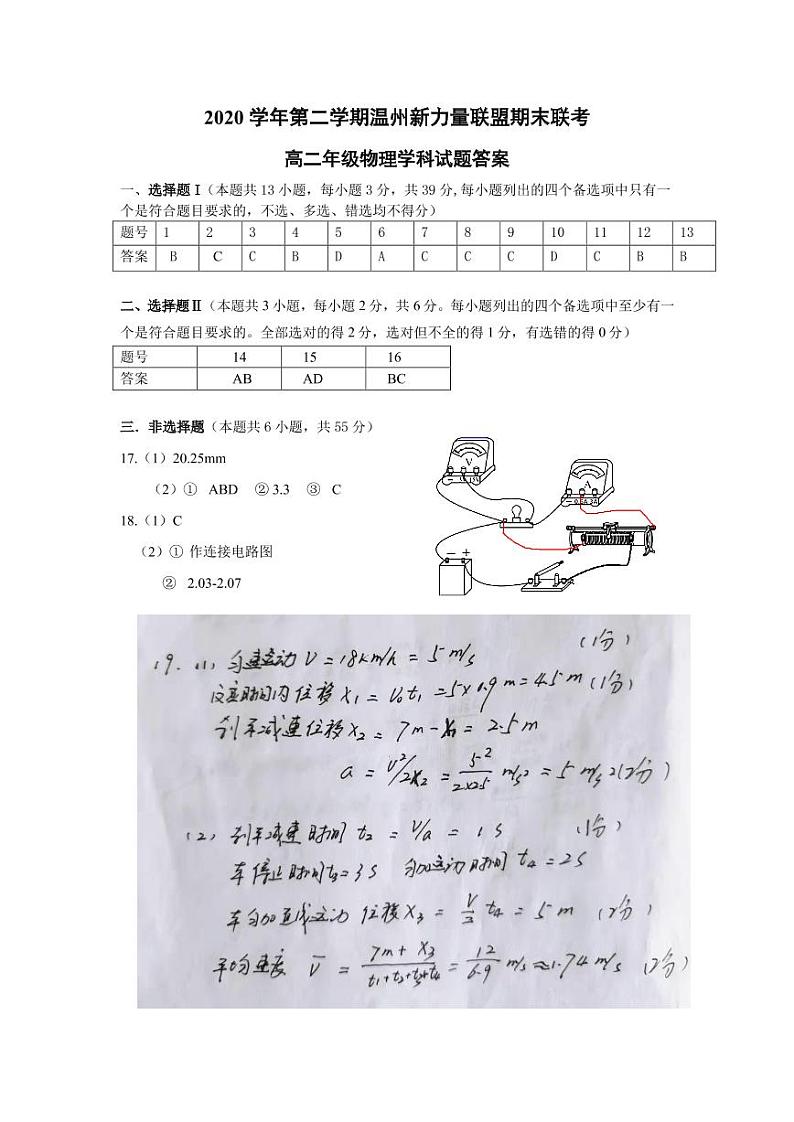 2020 学年第二学期温州新力量联盟期末联考
高二年级物理学科试题答案
一、选择题 I（本题共 13 小题，每小题 3 分，共 39 分,每小题列出的四个备选项中只有一
个是符合题目要求的，不选、多选、错选均不得分）
题号 1 2 3 4 5 6 7 8 9 10 11 12 13
答案 B C C B D A C C C D C B B
二、选择题Ⅱ（本题共 3 小题，每小题 2 分，共 6 分。每小题列出的四个备选项中至少有一
个是符合题目要求的。全部选对的得 2 分，选对但不全的得 1 分，有选错的得 0 分）
题号 14 15 16
答案 AB AD BC
三．非选择题（本题共 6 小题，共 55 分）
17.（1）20.25mm
（2）① ABD ② 3.3 ③ C
18.（1）C
（2）① 作连接电路图
② 2.03-2.07
V
A
− +
19. (1) 匀速运动 V = 18km/h = 5 m/s （1分）
反应时间内位移 X₁ = V₀t₁ = 5×0.9 m = 4.5 m （1分）
刹车减速位移 X₂ = 7m - X₁ = 2.5 m
a = V²/2X₂ = 5²/2×2.5 m/s² = 5 m/s² （2分）
(2) 刹车减速时间 t₂ = V/a = 1 s （1分）
车停止时间 t₃ = 3 s 匀加速运动时间 t₄ = 2s
车匀加直线运动 位移 X₃ = V/2 t₄ = 5 m （2分）
平均速度 V̄ = 7m + X₃/t₁+t₂+t₃+t₄ = 12/6.9 m/s ≈ 1.74 m/s （2分）